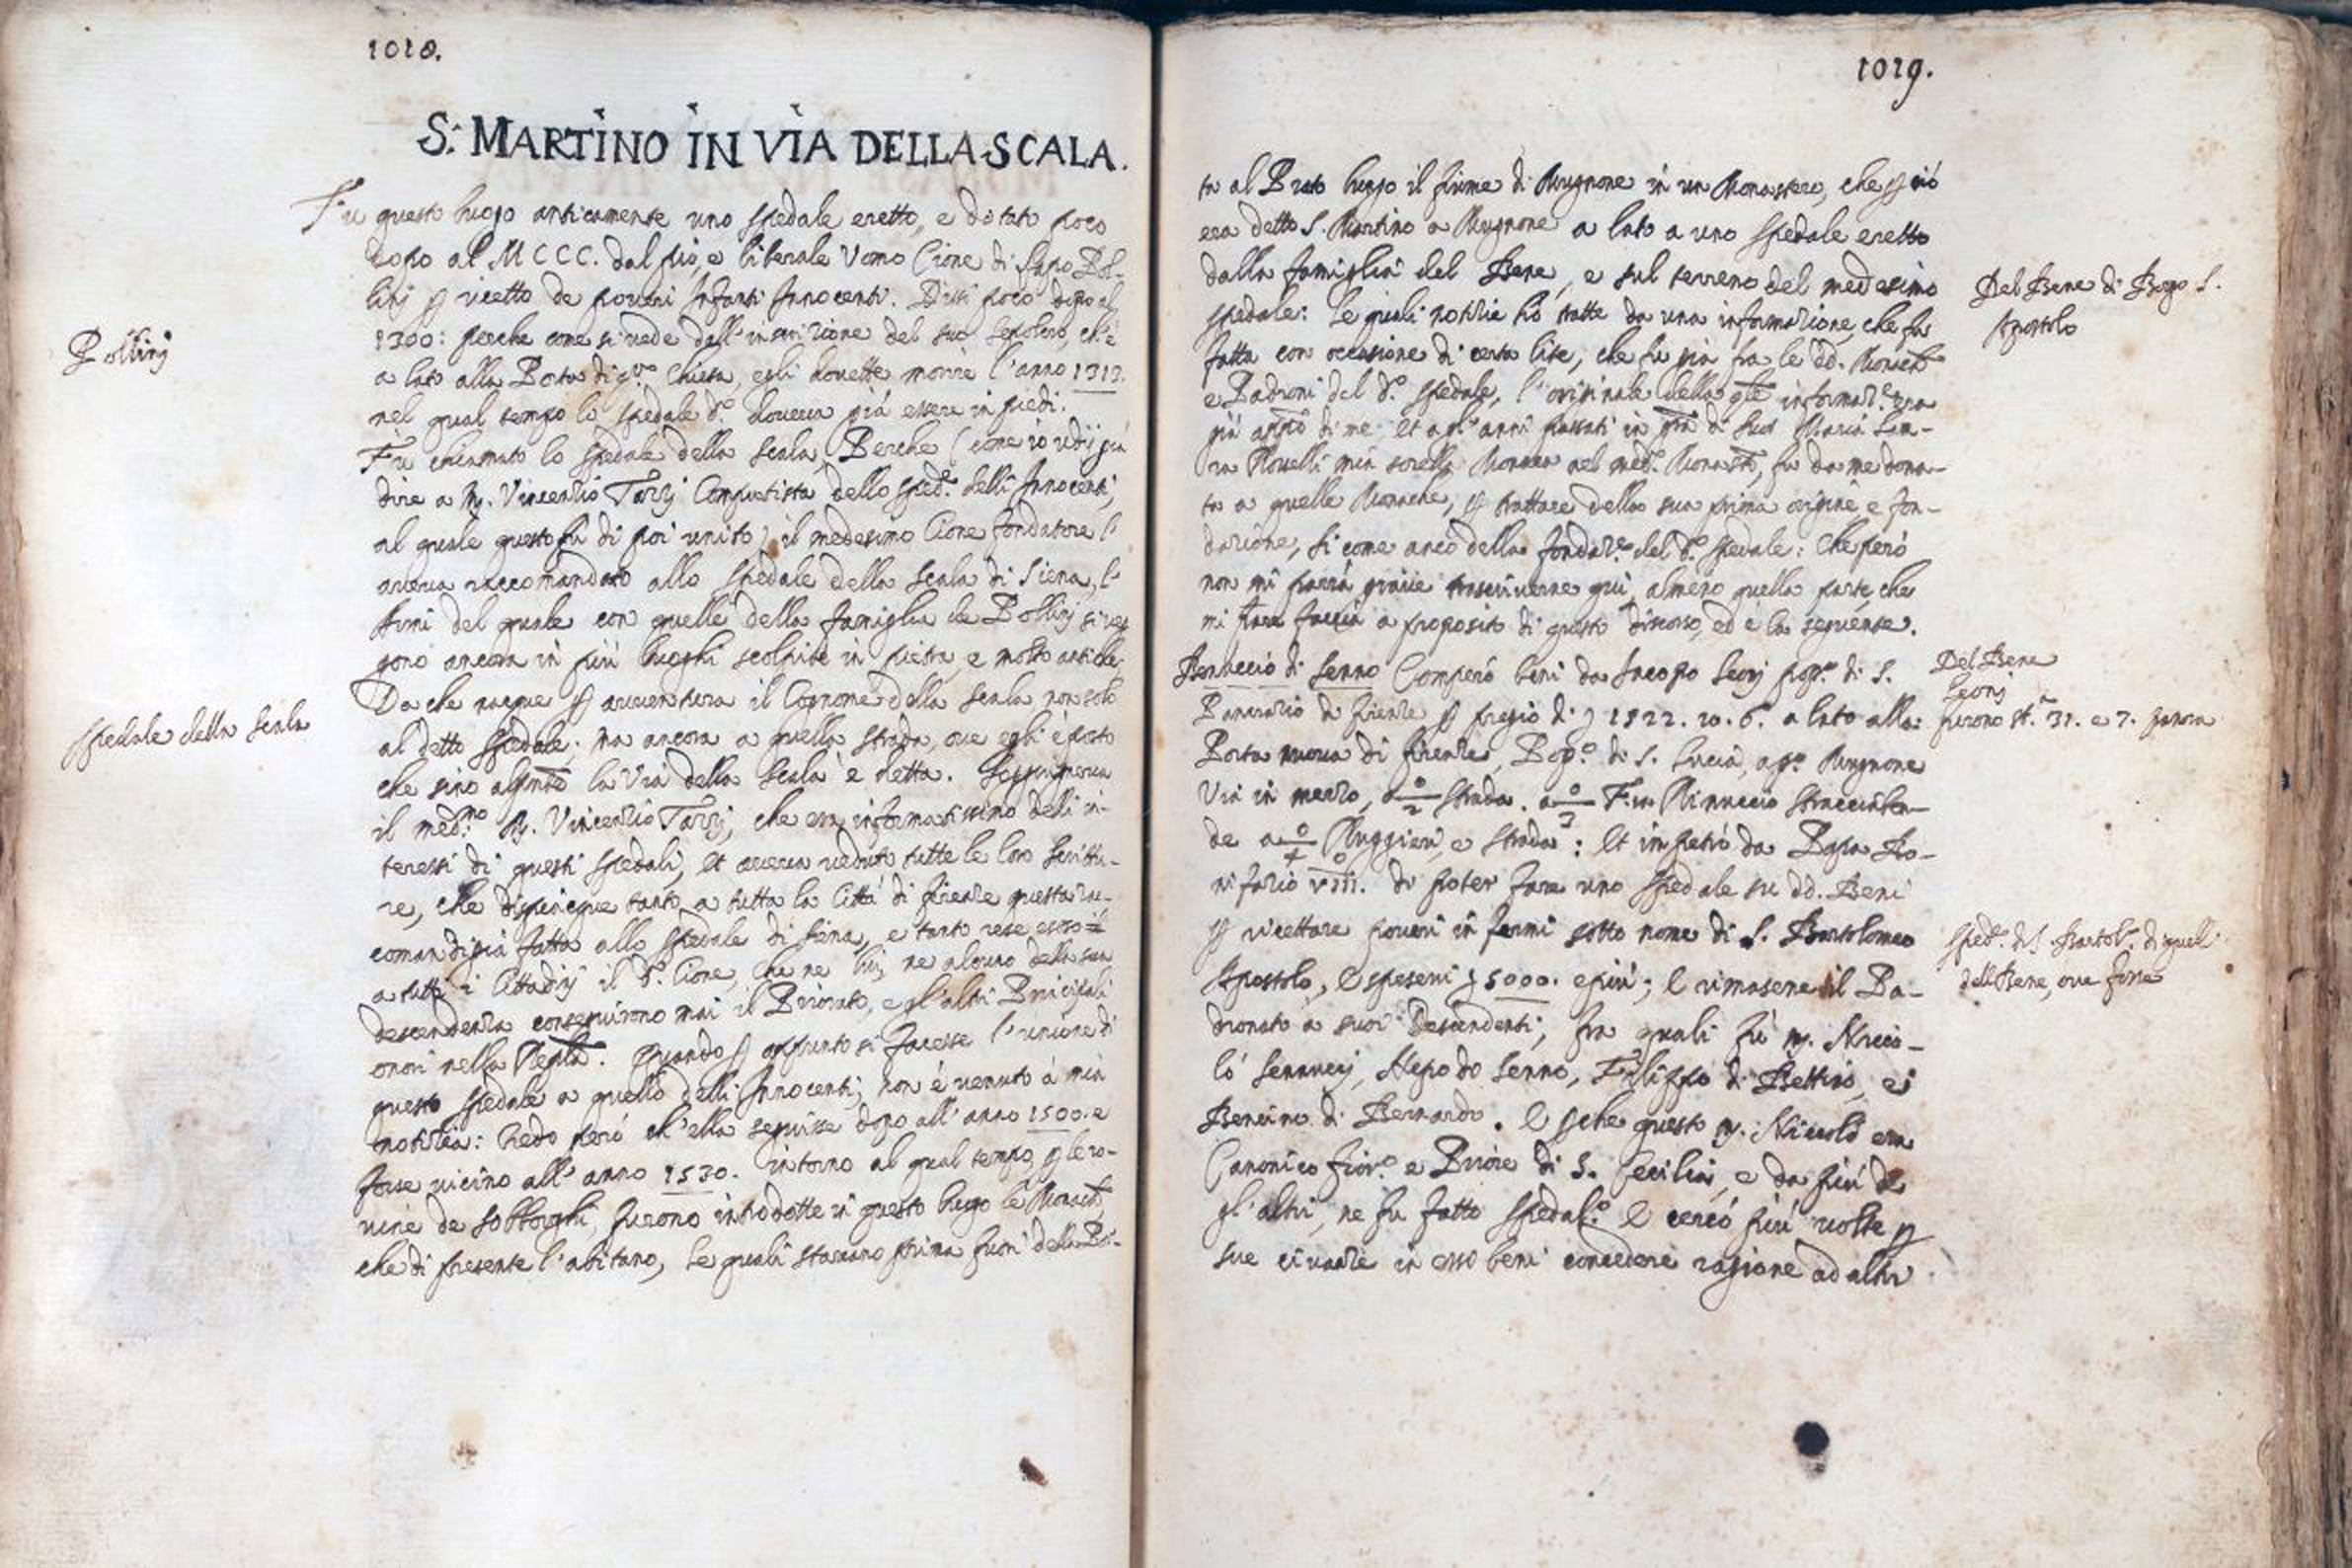 1018.
S: MARTINO IN VIA DELLA SCALA.
Fu questo luogo anticamente uno spedale eretto, e dotato poco
dopo al MCCC. dal pio, e liberale Vomo Cione di Lapo Pol-
linj p ricetto de poueri Infanti Innocenti. Dissi poco dopo el
1300: perche come si uede dall'inscrizione del suo sepolcro, ch'è
Pollinj
a lato alla Porta di q.ta Chiesa, egli douette morire l'anno 1313.
nel qual tempo lo spedale d.o doueua già essere in piedi.
Fu chiamato lo spedale della scala, Perche (come io udij già
dire a M. Vincenzio Torrj Computista dello sped.e delli Innocenti,
al quale questo fù di poi unito) il medesimo Cione fondatore l'
aueua raccomandato allo spedale della scala di Siena, l'
Armi del quale con quelle della famiglia de Pollinj si ueg
gono ancora in più luoghi scolpite in pietra, e molto antiche.
Da che nacque p auuentura il Cognome della scala non solo
Spedale della Scala
al detto spedale; ma ancora a quella strada, oue egli è posto
che sino al pnte la Via della Scala è detta. Soggiugneua
il med.mo M. Vincenzio Torrj, che era informatissimo delli in-
teressi di questi spedali, et aueua ueduto tutte le loro scrittu-
re, che dispiacque tanto a tutta la Città di firenze questa rac-
comandigia fatta allo spedale di Siena, e tanto rese esoso il
a tutti i Cittadinj il d.o Cione, che ne lui, ne alcuno della sua
descendenza conseguirono mai il Priorato, e gl'altri Principali
onori nella Repub.a. Quando p appunto si facesse l'unione di
questo spedale a quello delli Innocenti, non è uenuto à mia
notizia: Credo però ch'ella seguisse dopo all'anno 1500. e
forse uicino all'anno 1530. intorno al qual tempo p le ro-
uine de sobborghi, furono introdotte in questo luogo le Monach.
che di presente l'abitano, le quali stauano prima fuori della Por-
1019.
ta al Prato lungo il fiume di Mugnone in un Monastero, che p ciò
era detto S. Martino a Mugnone a lato a uno spedale eretto
dalla famiglia del Bene, e sul terreno del medesimo
Del Bene di Borgo S.
Apostolo
spedale: le quali notizie hò tratte da una informazione, che fu
fatta con occasione di certa lite, che fu già fra le dd. Monach.
e Padroni del d.o spedale, l'originale della qle informaz.e era
già app.o di me; et agl'anni passati in di Suor Maria Lau-
ra Nouelli mia sorella Monaca nel med.o Monast., fu da me dona-
ta a quelle Monache, p trattare della sua prima origine e fon-
dazione, si come anco della fondaz.e del d.o spedale: che però
non mi parrà graue trascriuerne qui almeno quella parte, che
mi pare faccia a proposito di questo discorso, ed è la seguente.
Bennuccio di Senno Comperò beni da Iacopo Leonj pop.o di S.
Del Bene
Leonj
Pancrazio di firenze p pregio di 1322. 10. 6. a lato alla:
furono st.a 31. e 7. panora
Porta nuoua di firenze, Pop.o di S. Lucia, ap.o Mugnone
Via in mezzo, a o/2 strada. a o/3 F.m Rinuccio
de a o/4 Ruggieri, e strada: Et impetrò da Papa Bo-
nifazio VIII. di poter fare uno spedale su dd. Beni
p ricettare poueri infermi sotto nome di S. Bartolomeo
Sped.e di S. Bartol.o di quelli
Apostolo, E speseui 5000. e più; E rimasene il Pa-
dell Bene, oue fosse
dronato a suoi Descendenti, fra quali fù M. Nicco-
lò Sennucj, Nepo do Senno, Filippo di Bettino, e
Bencino di Bernardo. E pche questo M. Niccolò era
Canonico fior.o e Priore di S. Cecilia, e da più de
gl'altri, ne fu fatto spedal.o E cercò più uolte p
sue ciuanze in esso beni concedere ragione ad altri